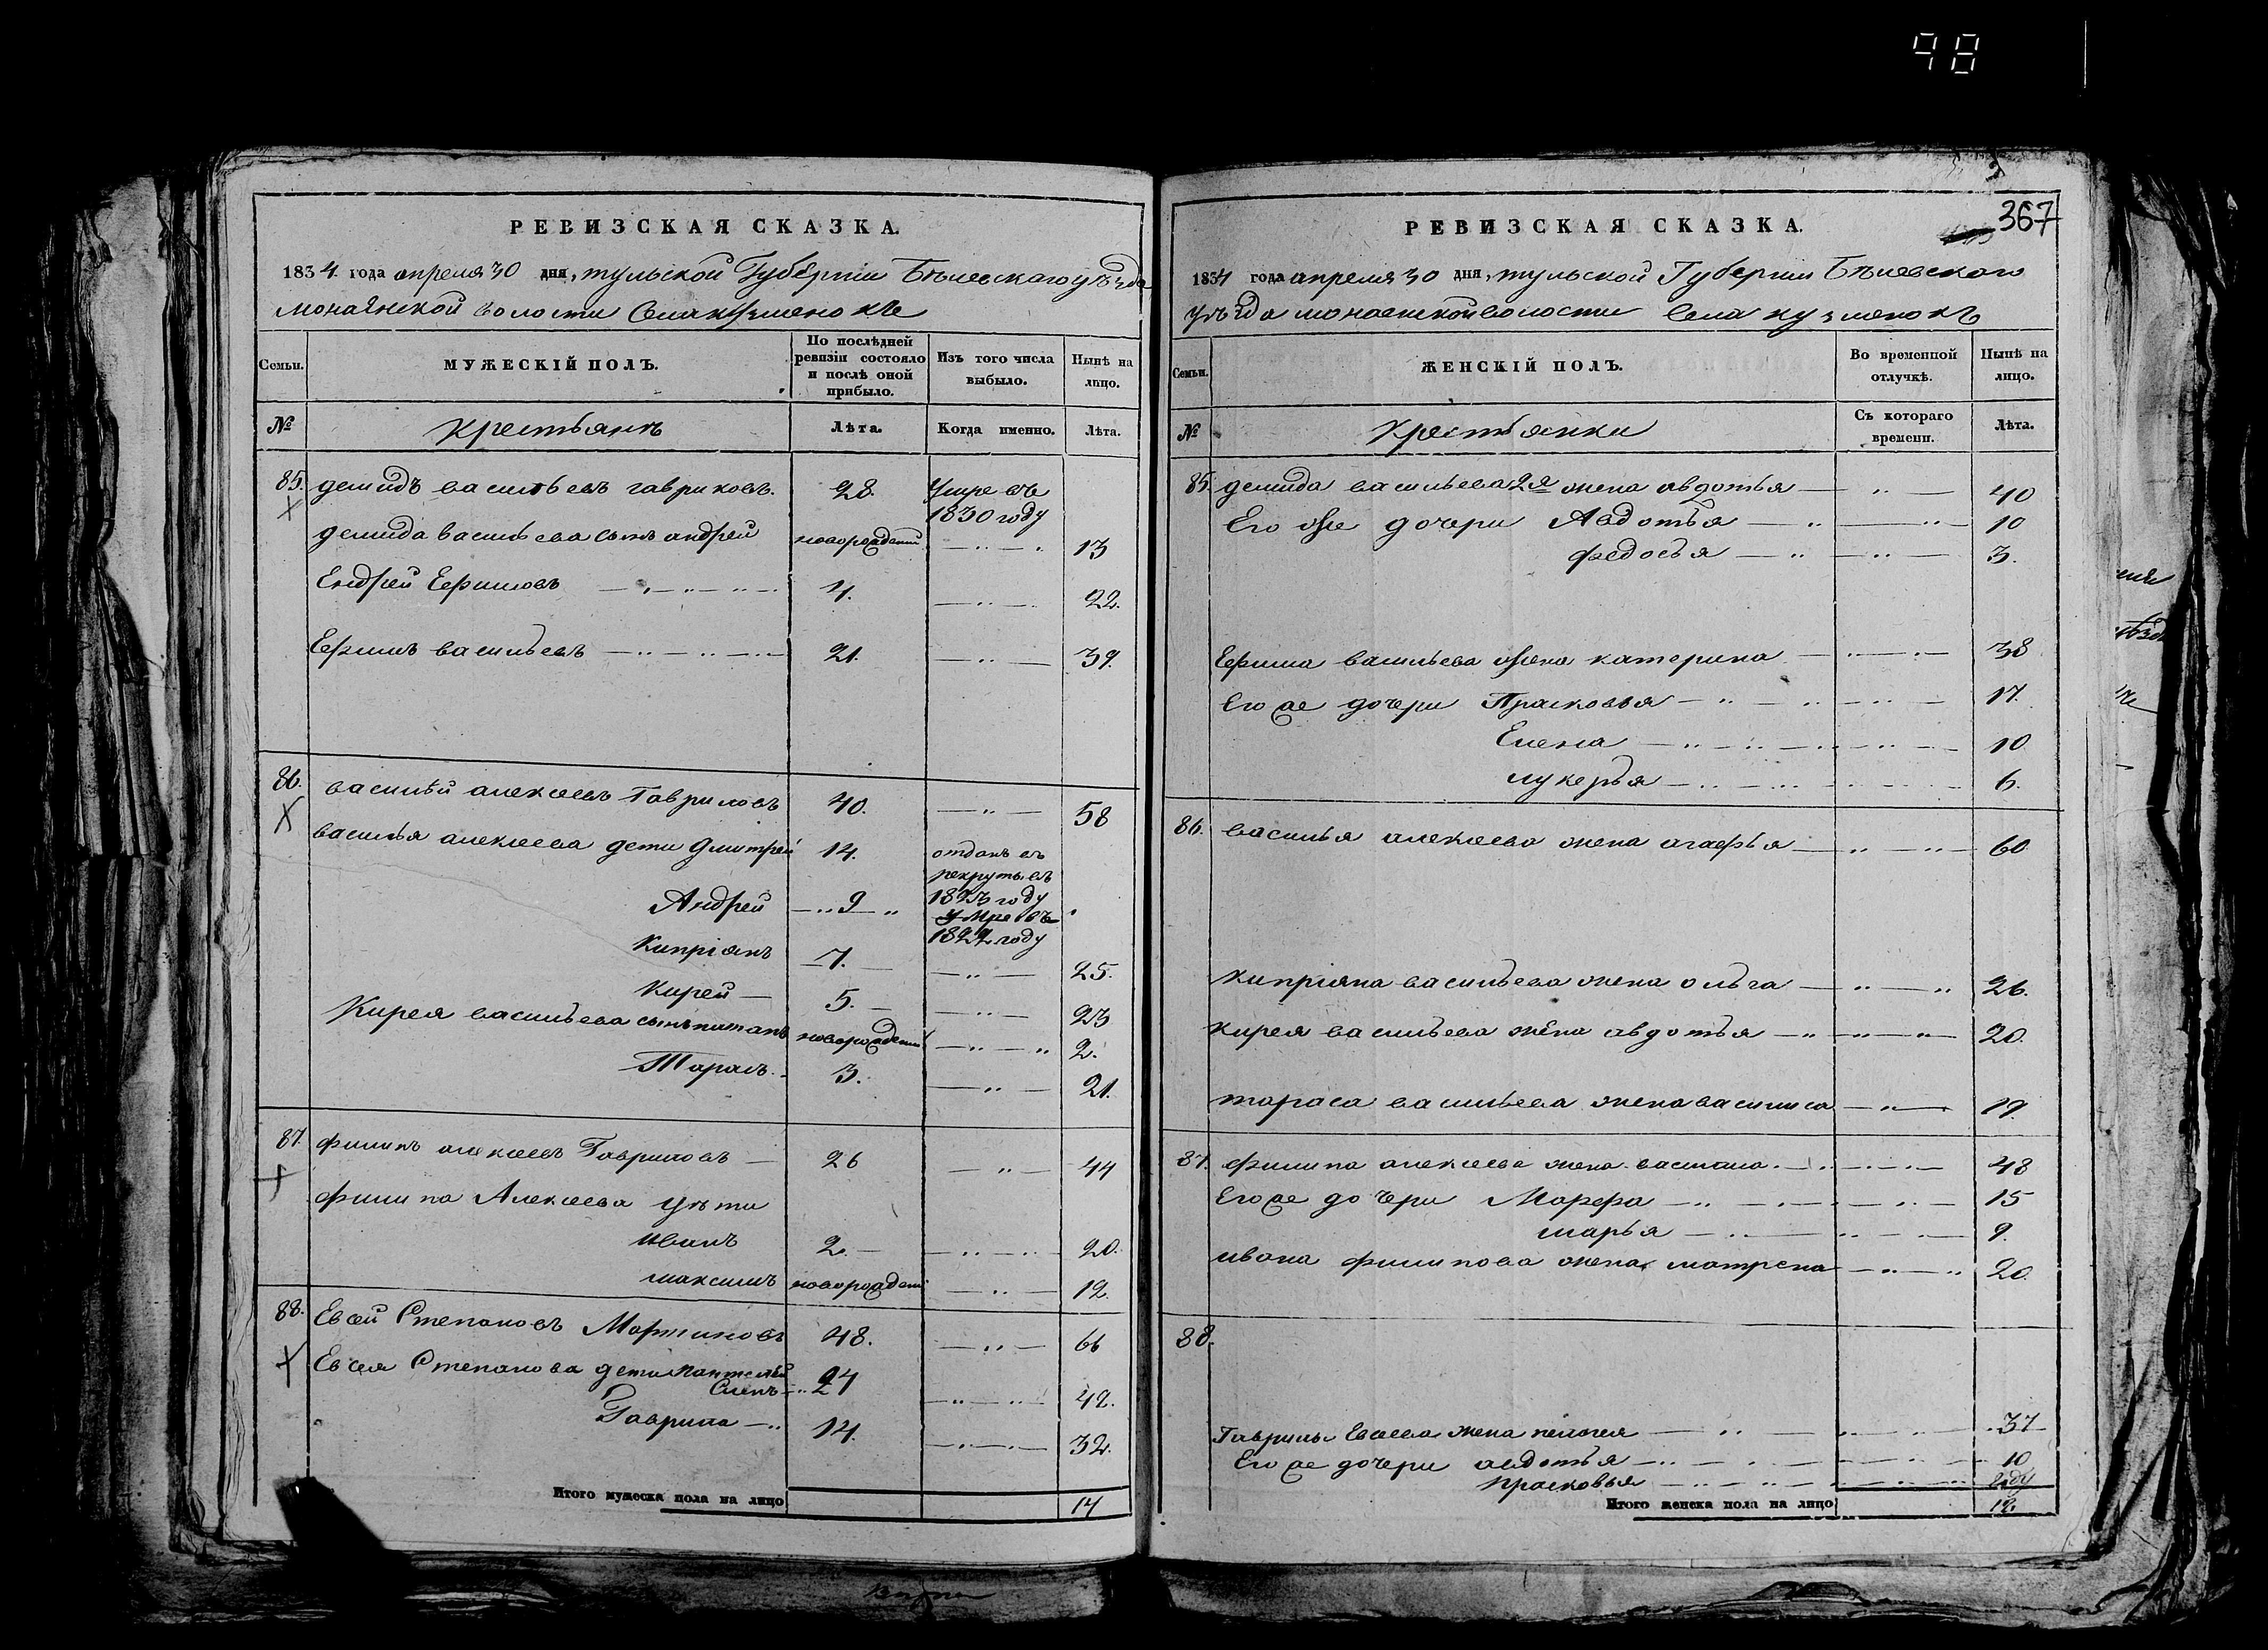 98
РЕВИЗСКАЯ СКАЗКА.
1834. года апреля 30 дня, тульской Губерніи Бѣлевскаго уѣзда
монаенской волости Села кузменокъ
Семьи.
МУЖЕСКІЙ ПОЛЪ.
По послѣдней ревизіи состояло и послѣ оной прибыло.
Изъ того числа выбыло.
Нынѣ на лицо.
№ Крестьянъ Лѣта. Когда именно. Лѣта.
85. демидъ васильевъ гавриковъ. 28. Умре въ 1830 году
демида васильева сынъ андрей новорожденый 13
Ендрей Ефимовъ 4. 22.
Ефимъ васильевъ 21. 39.
86. василѣй алексеевъ Гавриловъ 40. 58
василья алексеева дети дмитрей 14. отданъ въ рекруты въ 1823 году
Андрей 9 умре въ 1822 году
Кипріянъ 7. 25.
Кирей 5. 23
Кирея васильева сынъ новорожденый 2.
Тарасъ 3. 21.
87. филипъ алексеевъ Гавриловъ 26 44
филипа Алексеева дѣти
иванъ 2. 20.
максимъ новорожденый 12.
88. Евсей Степановъ Мартиновъ 48. 66
Евсея Степанова дети пантелѣй
Слепъ 24 42.
Гаврила 14. 32.
Итого мужеска пола на лицо 14
367
РЕВИЗСКАЯ СКАЗКА.
1834 года апреля 30 дня, тульской Губерніи Бѣлевскаго
уѣзда монаенской волости Села кузменокъ
Семьи.
ЖЕНСКІЙ ПОЛЪ.
Во временной отлучкѣ.
Нынѣ на лицо.
№ Крестьянки Съ котораго времени. Лѣта.
85. демида васильева 2я жена авдотья 40
Его же дочери Авдотья 10
федосья 3.
Ефима васильева жена катерина 38
Его же дочери Прасковья 17.
Елена 10
лукерья 6.
86. василья алексеева жена агафья 60
кипріяна васильева жена ольга 26.
кирея васильева жена авдотья 20.
тараса васильева жена василиса 19.
87. филипа алексеева жена 48
Его же дочери Марфа 15
марья 9.
ивана филипова жена матрена 20.
88.
Гаврилы Евсеева жена пелагея 37
Его же дочери авдотья 10
прасковья 2
Итого женска пола на лицо 18.